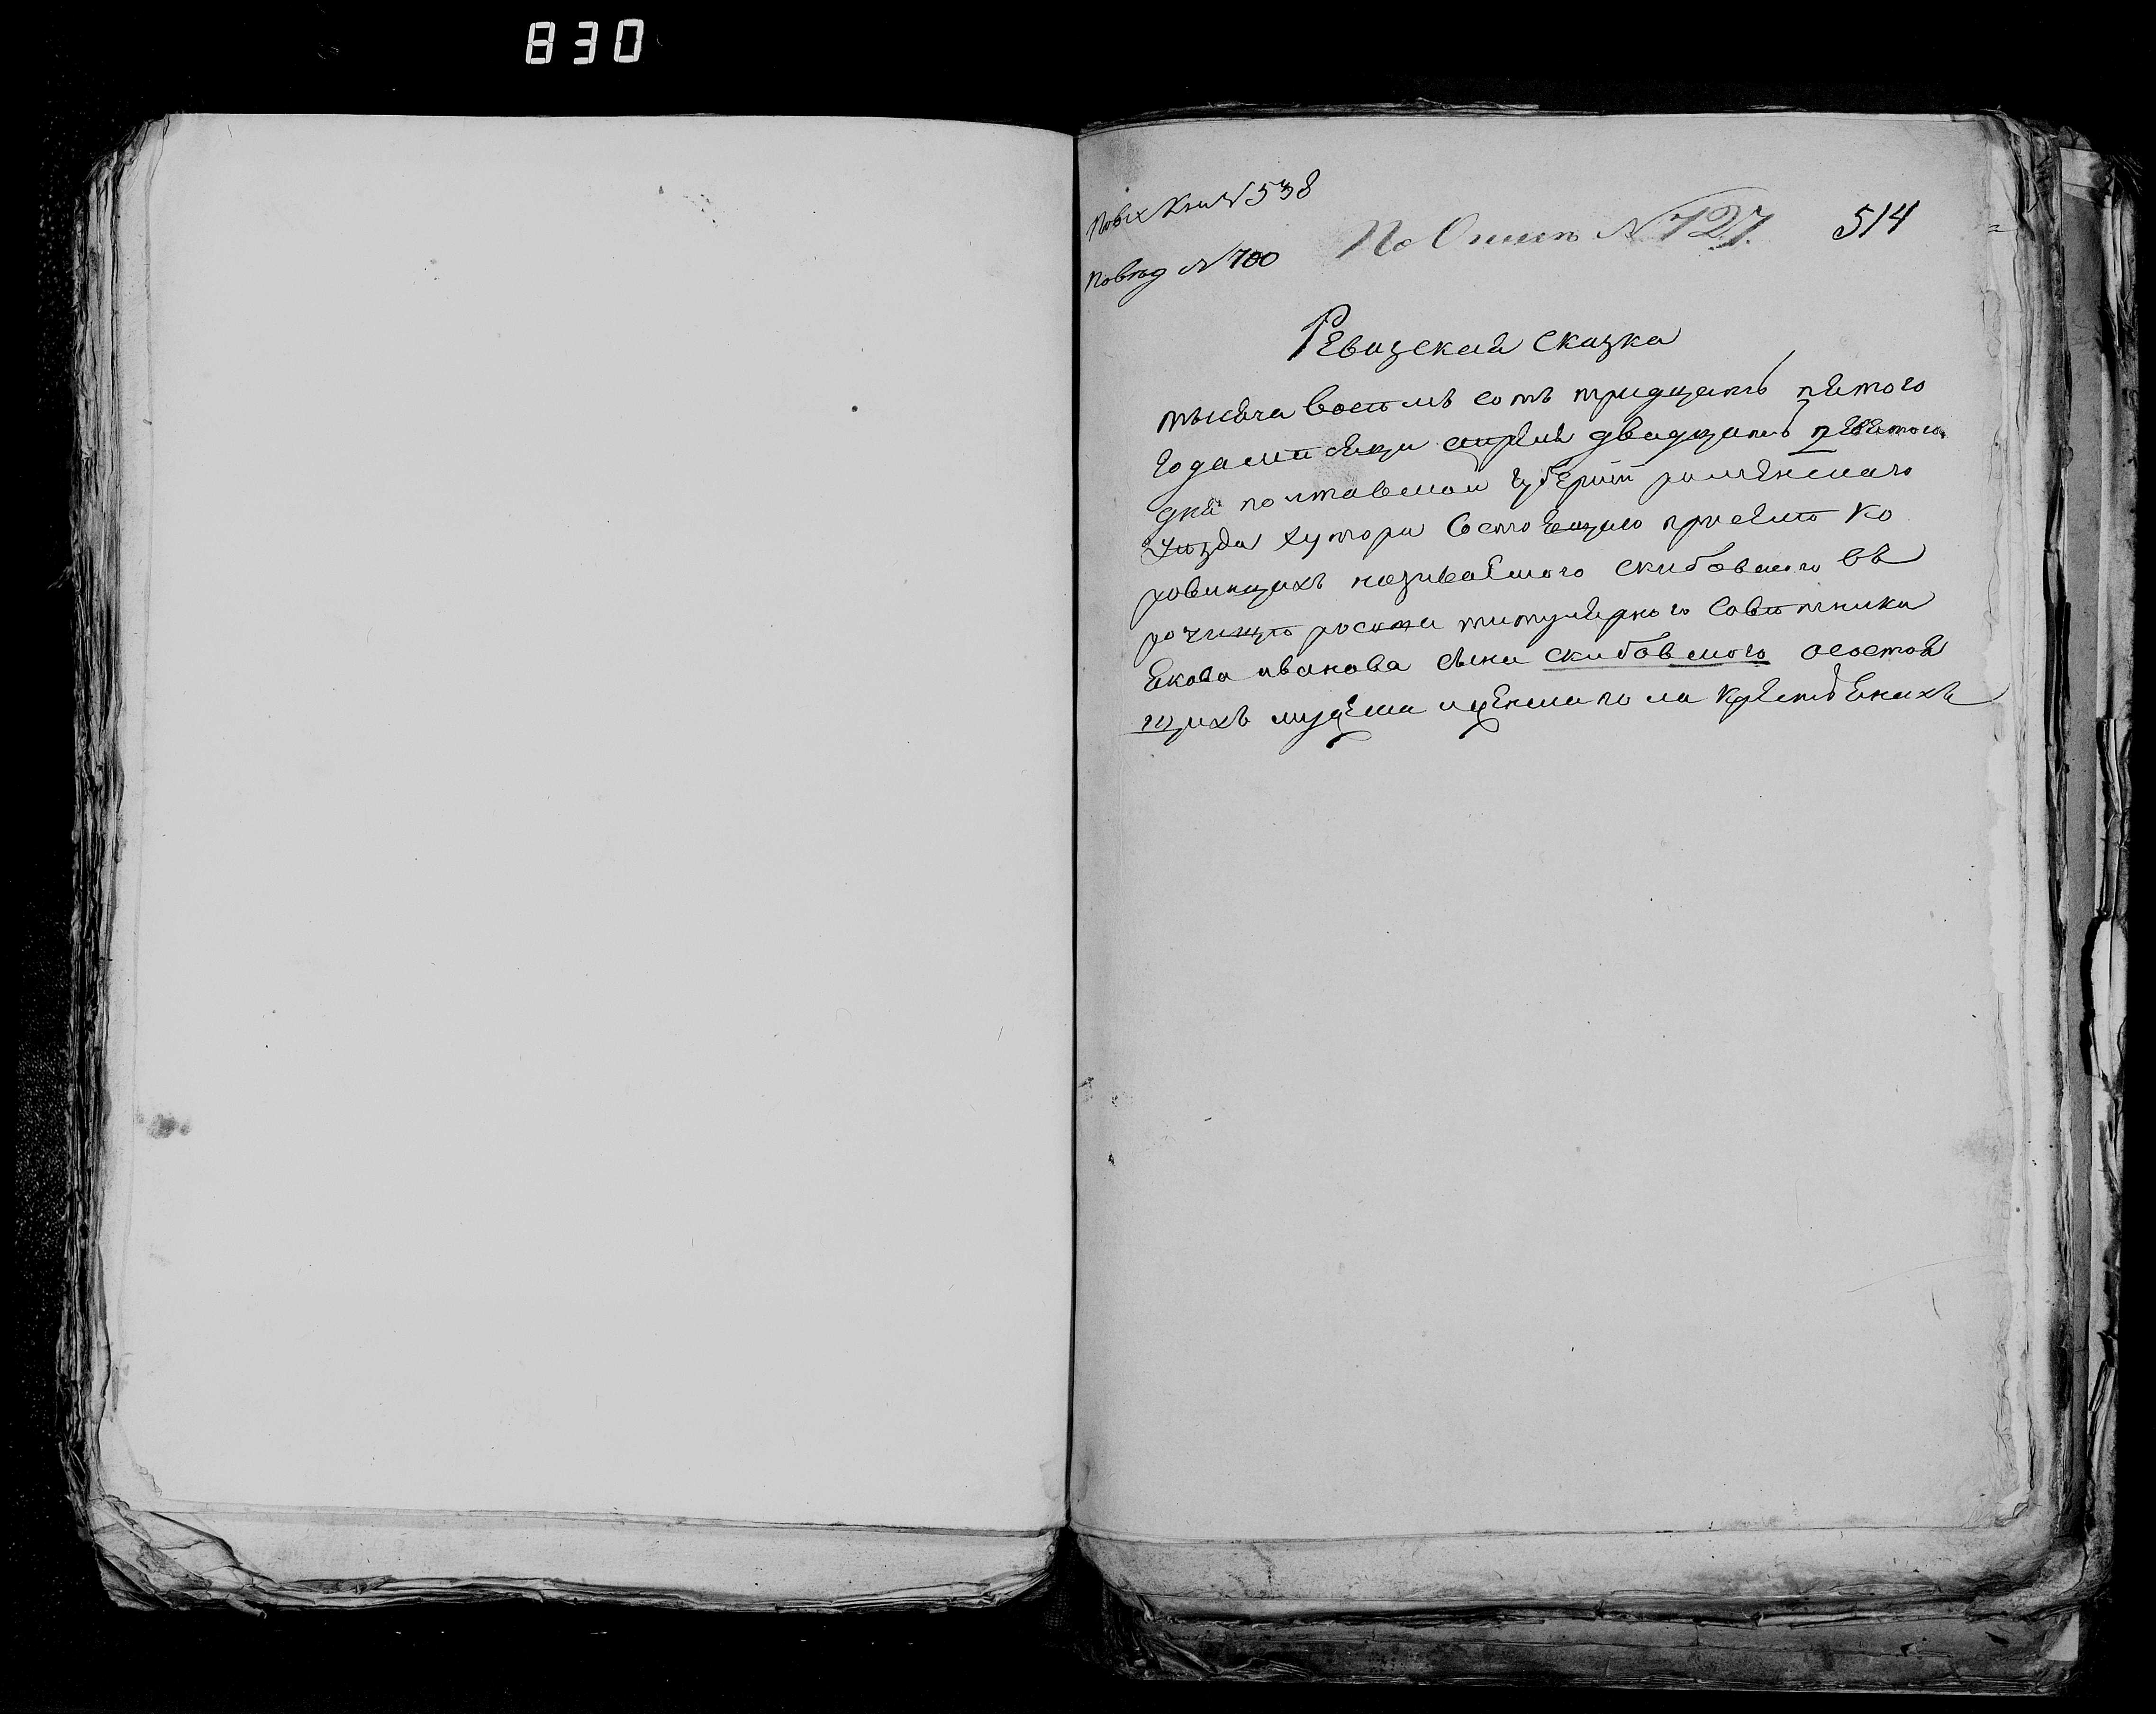 830
По вх Кни № 538
По Описи № 727.
514
По вѣд № 700
Ревизская сказка
тысяча восѣмь сотъ тридцать пятого
года мѣсяця апреля двадцать девятого
дня полтавской губернїи роменского
уѣзда хутора состоящого при селѣ Ко
ровинцахъ називаемого скибовского въ
рочищѣ росоха титулярного совѣтника
Якова иванова сына скибовского осостоя
щихъ мужеска иженского пола крестьянахъ